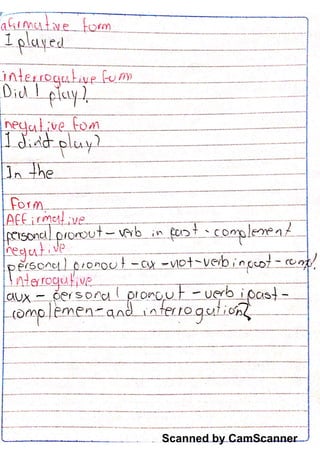 afirmative form
I played
interrogative form
Did I play?
negative fom
I didn't play?
In the
Form
Affirmative
personal pronout - verb in past - complement
negative
personal pronout - aux - not - verb in past - compl.
Interrogative
aux - personal pronout - verb i past -
complemen - and interrogation?
Scanned by CamScanner